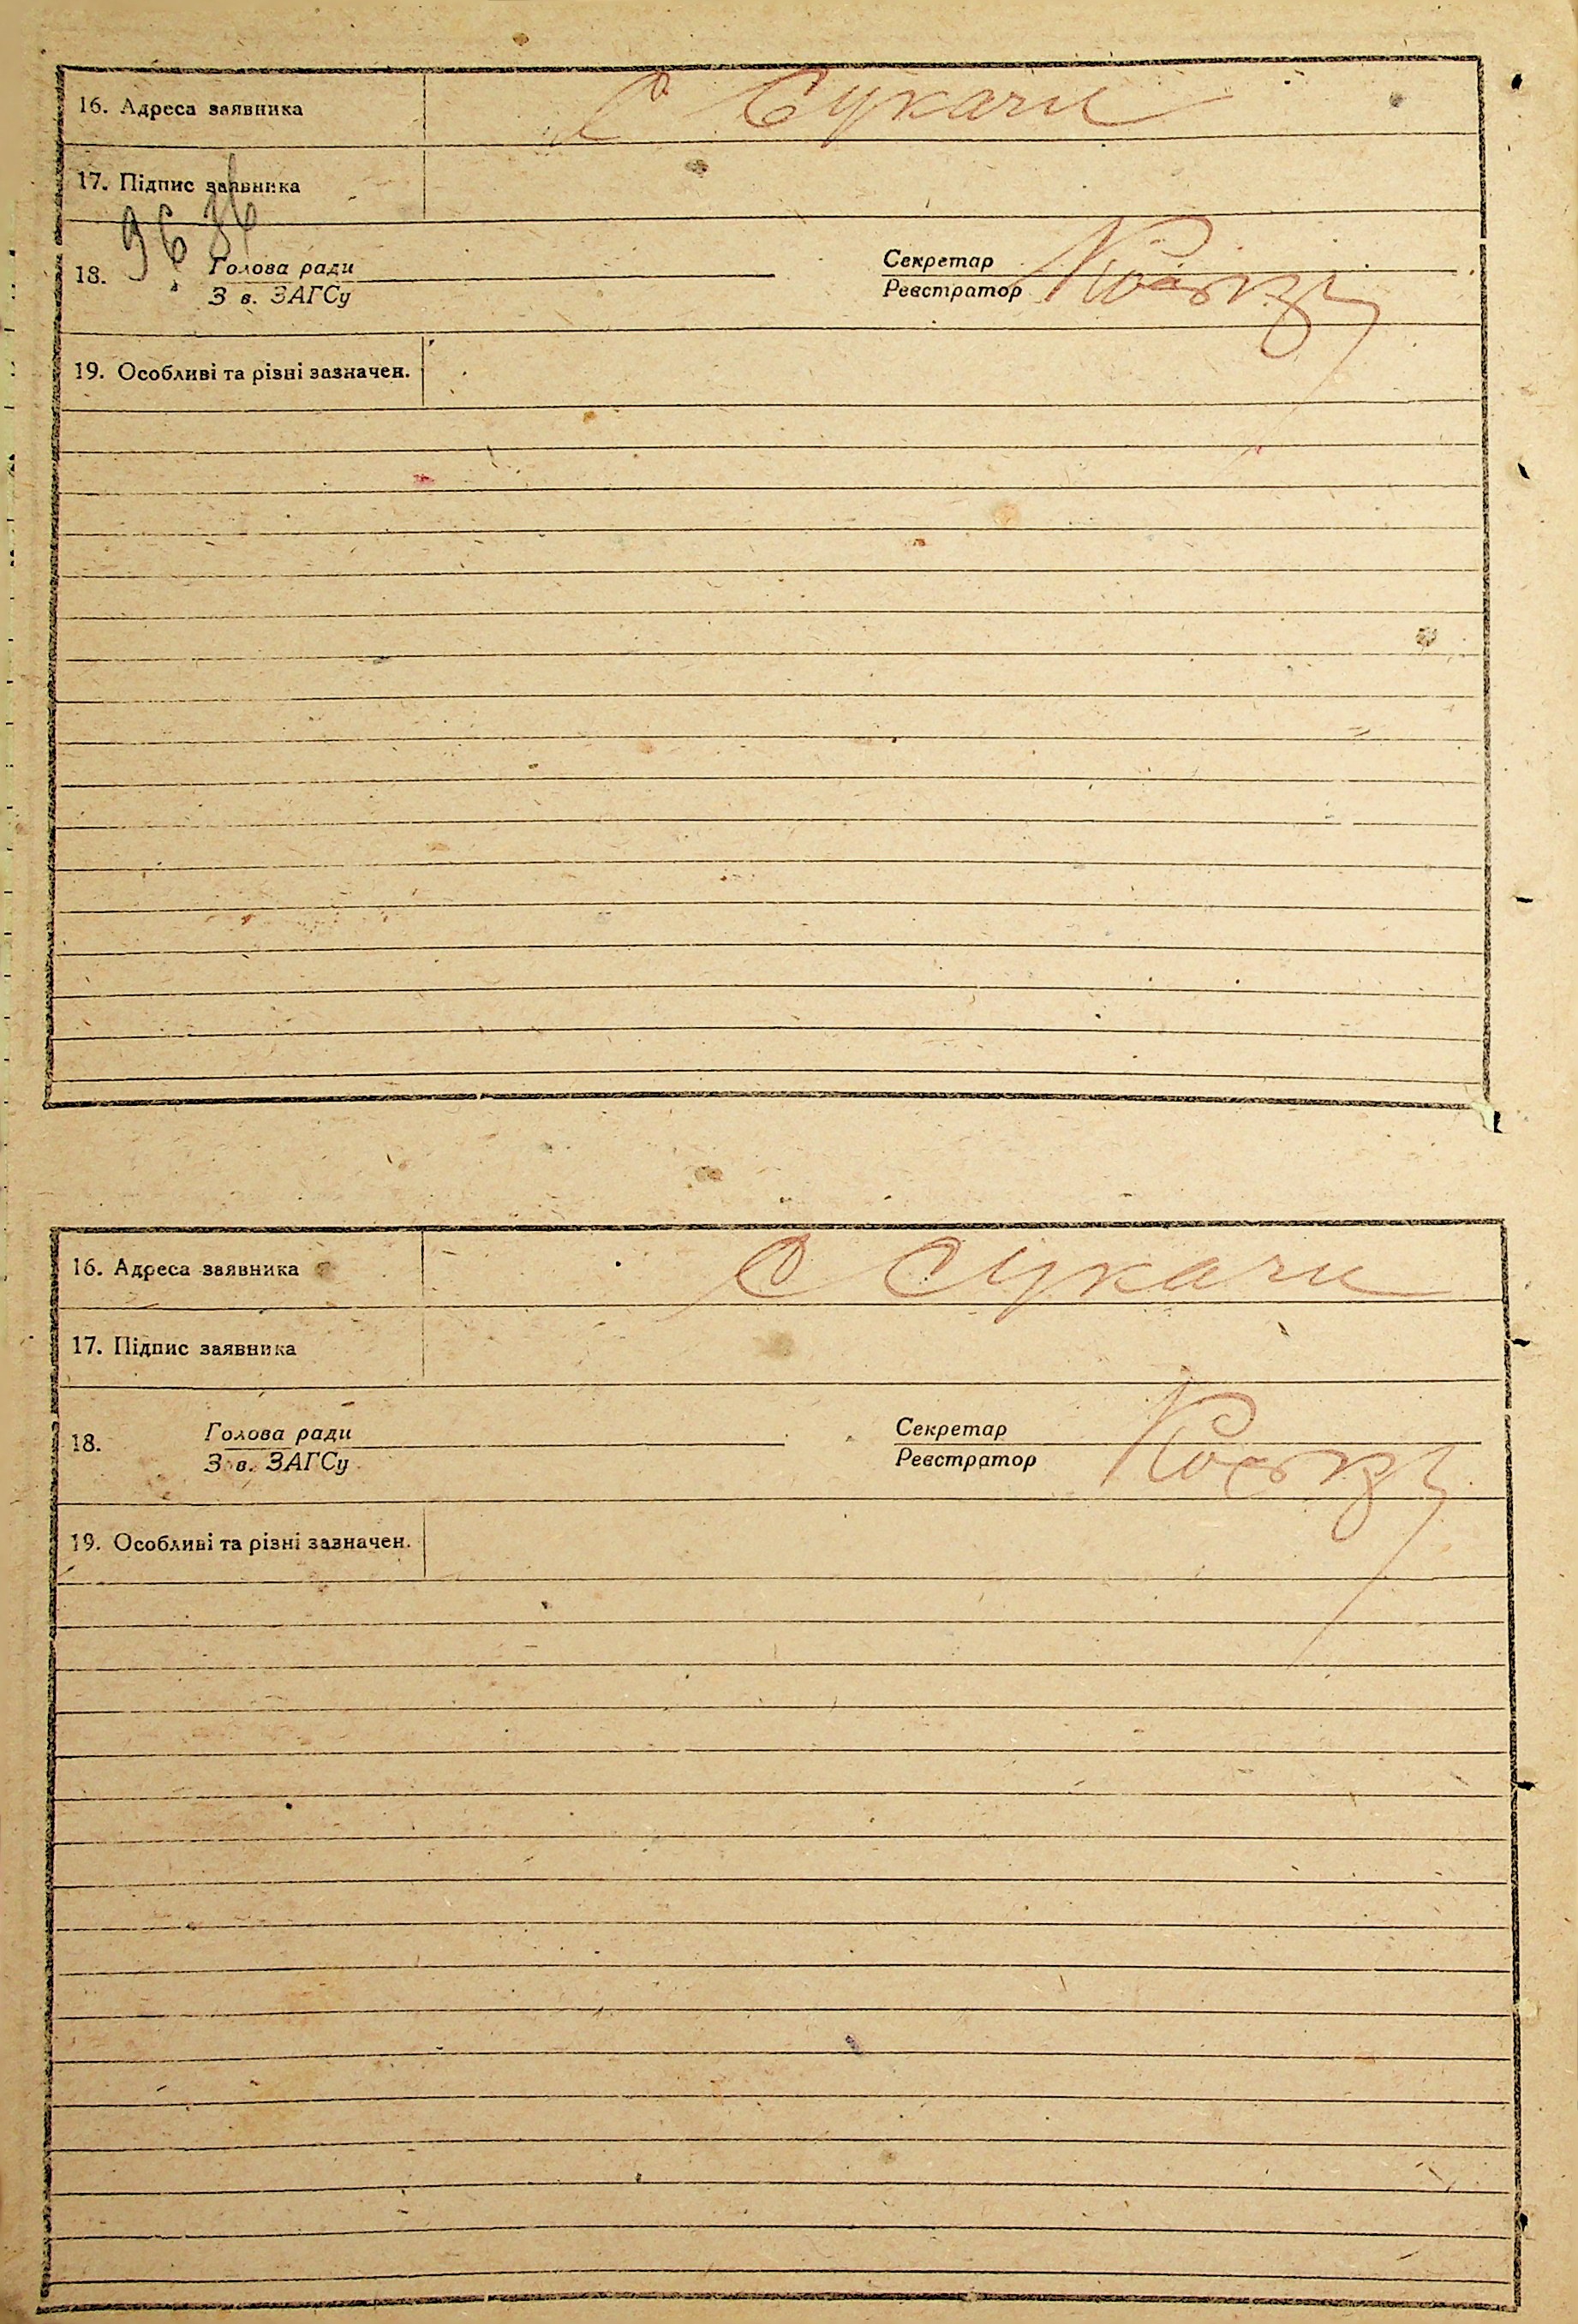 16. Адреса заявника С Сукачи
17. Підпис заявника
96 36
18. Голова ради Секретар
З в. ЗАГСу Реєстратор
19. Особливі та різні зазначен.
16. Адреса заявника С Сукачи
17. Підпис заявника
18. Голова ради Секретар
З в. ЗАГСу Реєстратор
19. Особливі та різні зазначен.